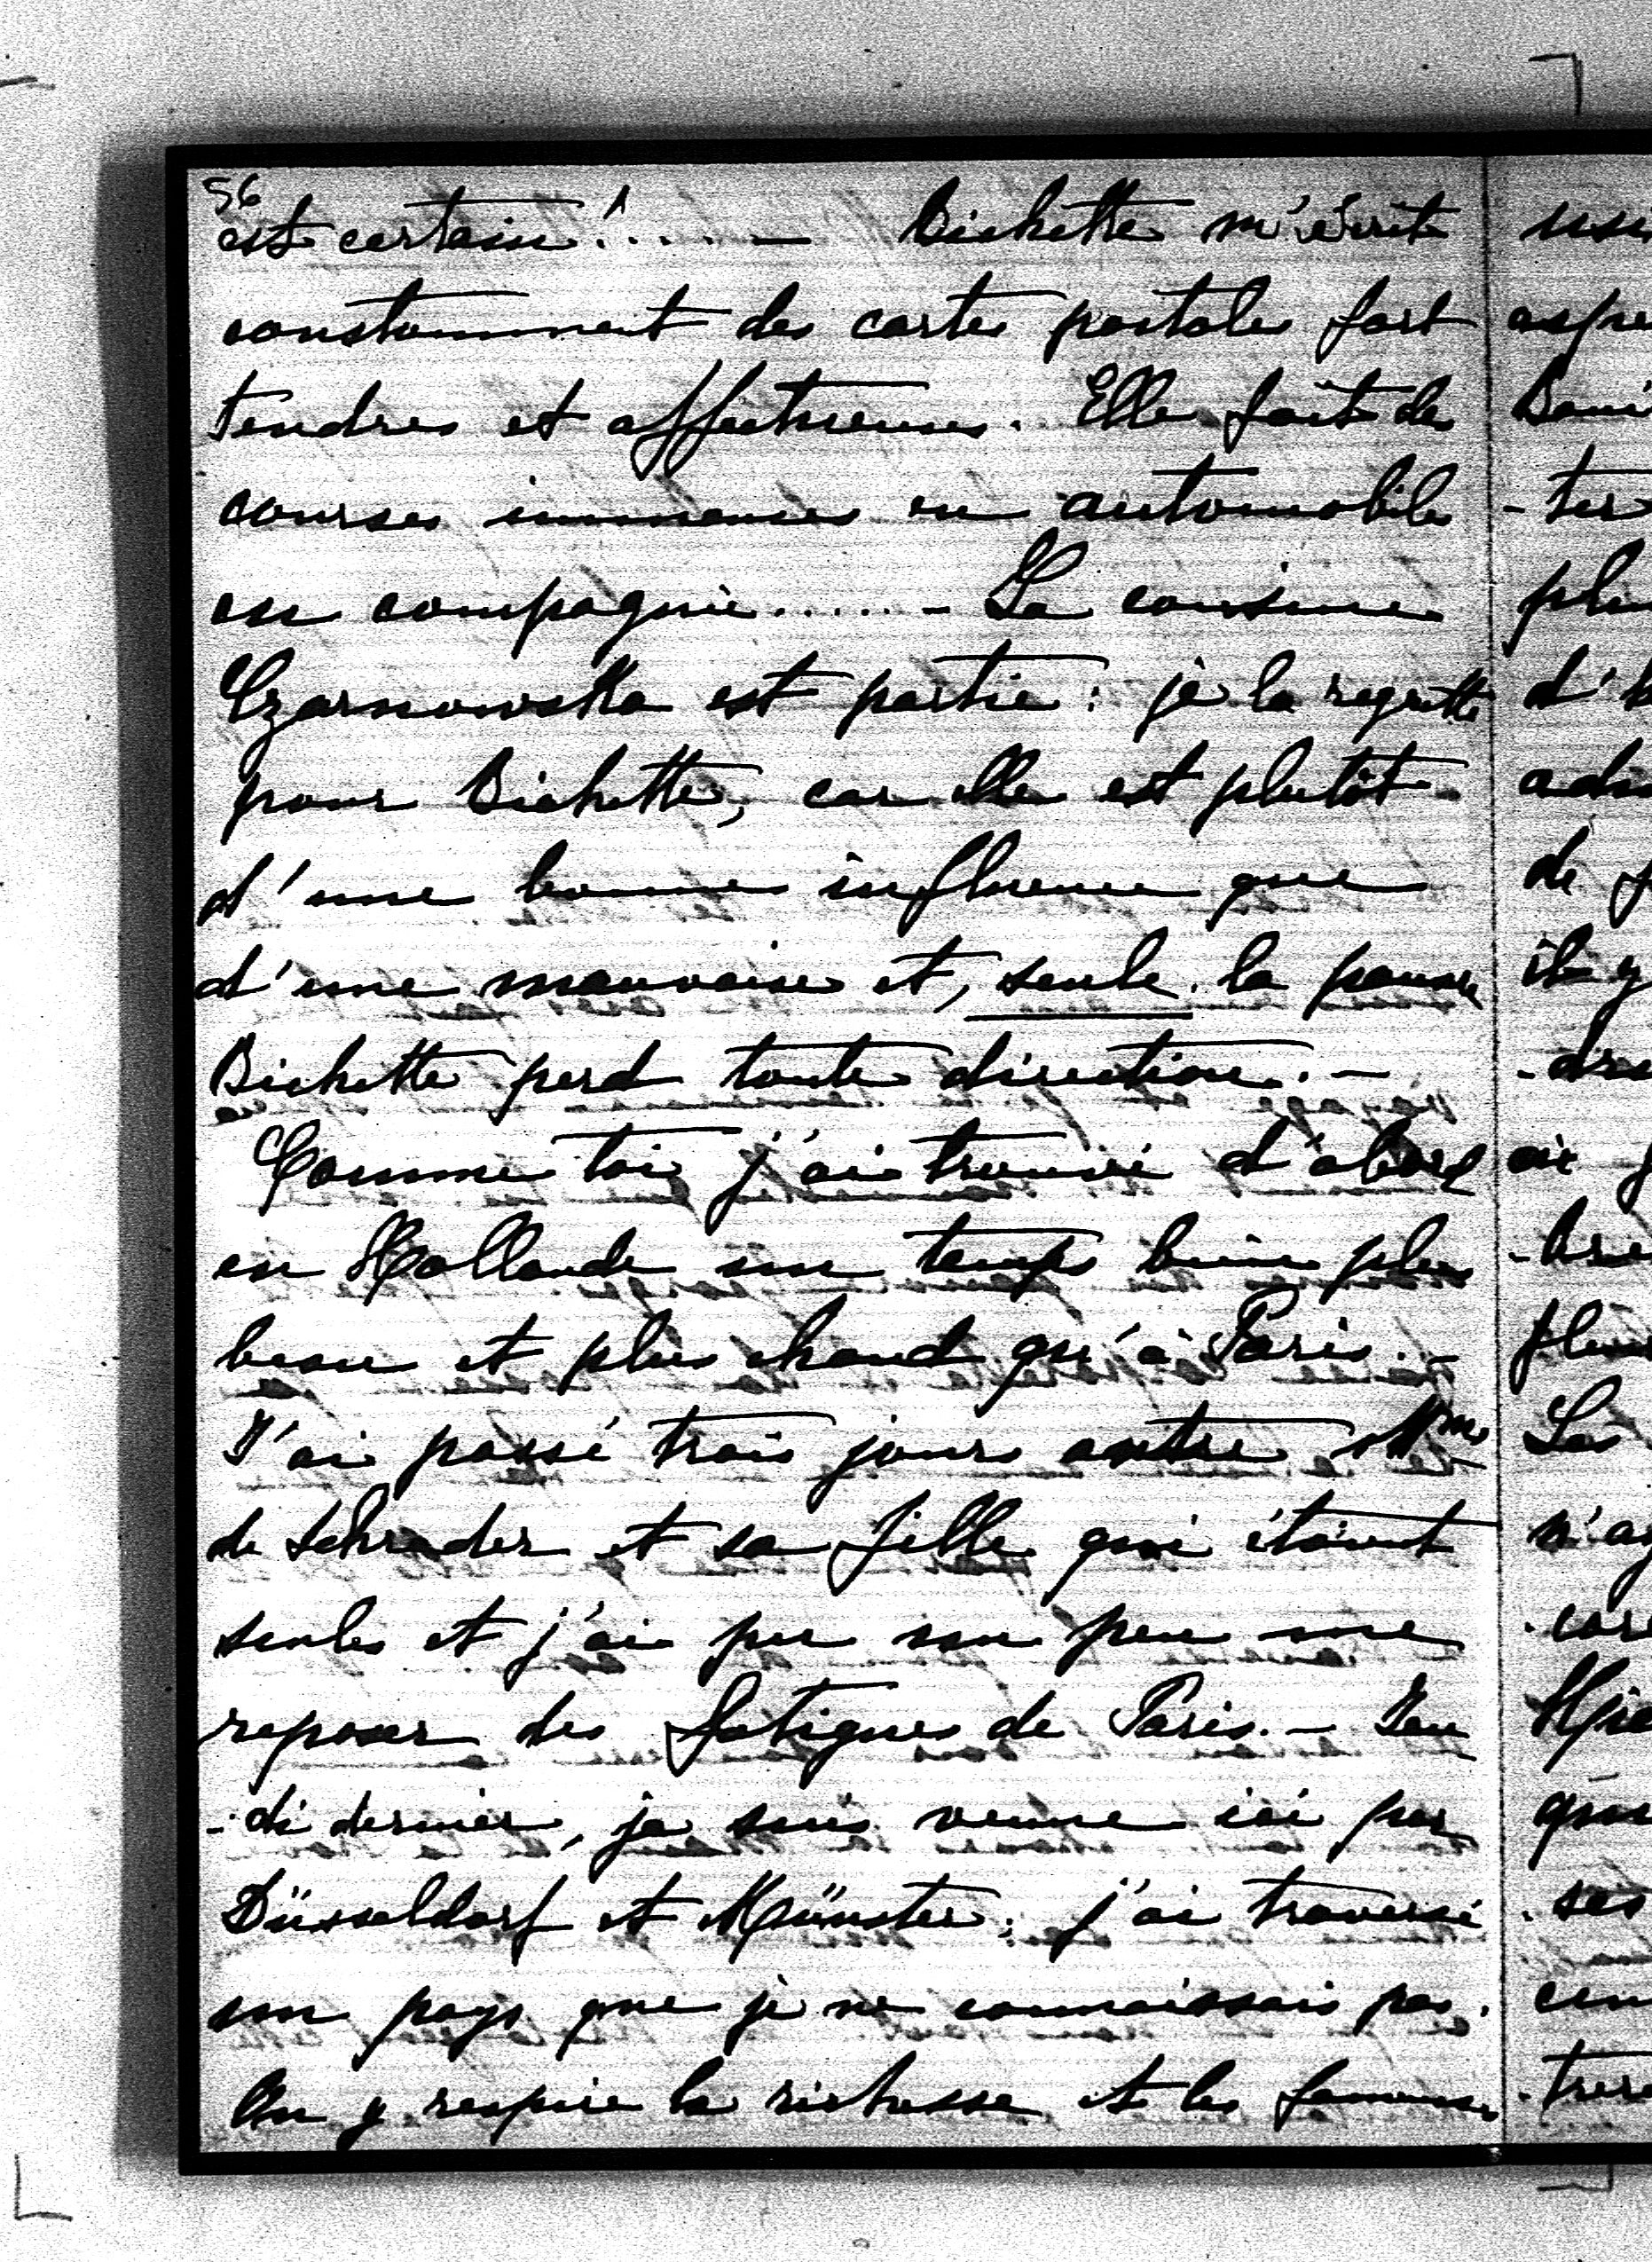 56
est certain!..... — Bichette m'écrit
constamment des cartes postales fort
tendres et affectueuses. Elle fait des
courses immenses en automobile
en compagnie...... — La cousine
Czarnowska est partie: je la regrette
pour Bichette, car elle est plutôt
d'une bonne influence que
d'une mauvaise et, seule, la pauvre
Bichette perd toute direction. —
Comme toi j'ai trouvé d'abord
en Hollande un temps bien plus
beau et plus chaud qu'à Paris. —
J'ai passé trois jours entre Mme
de Schrader et sa fille qui étaient
seules et j'ai pu un peu me
reposer des fatigues de Paris. — Jeu
-di dernier, je suis venue ici par
Düsseldorf et Münster; j'ai traversé
un pays que je ne connaissais pas.
On y respire la richesse et les fameuses